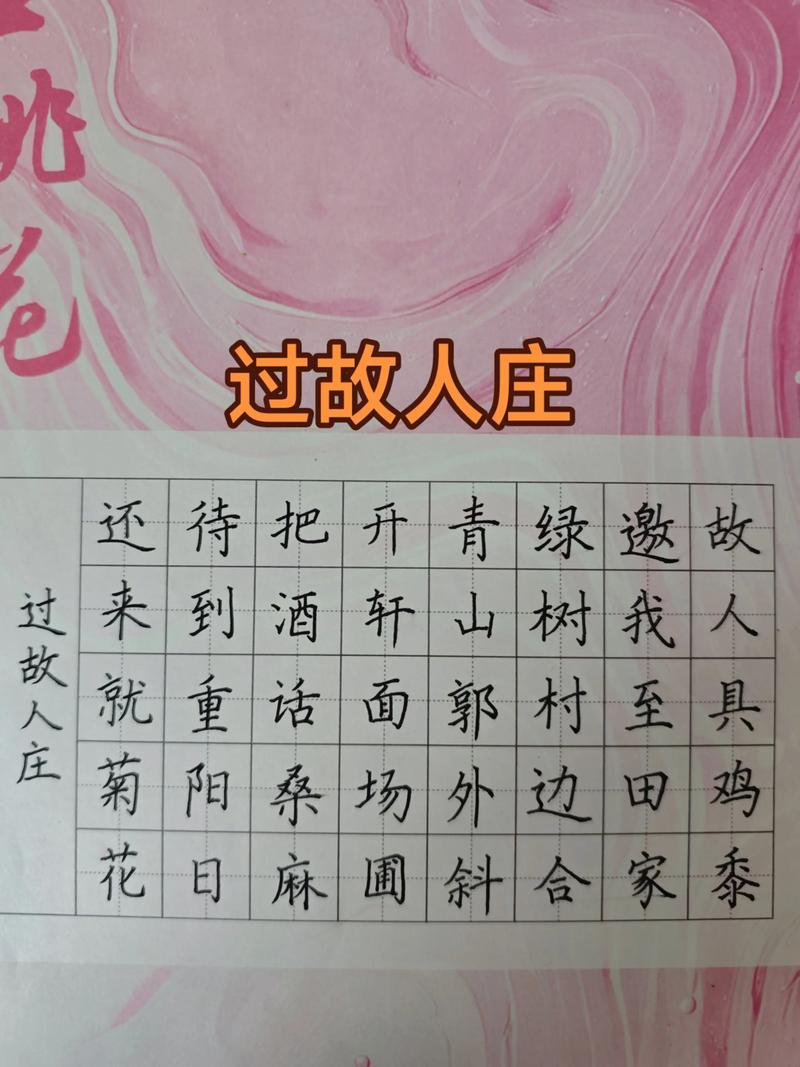 过故人庄
故人具鸡黍
邀我至田家
绿树村边合
青山郭外斜
开轩面场圃
把酒话桑麻
待到重阳日
还来就菊花
过故人庄